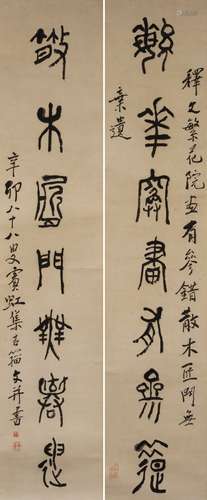 釋文繁花院畫有參錯散木匠門無
棄遺
繁華畫有參
散木匠門無棄遺
辛卯八十八叟賓虹集古籀文并書